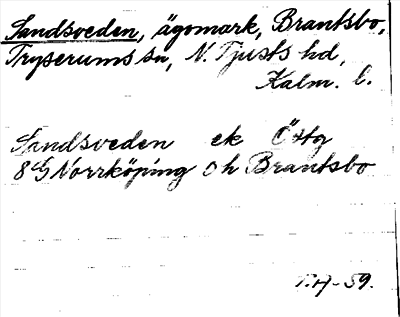 Sandsveden, ägomark, Brantsbo,
Tryserums sn, N. Tjusts hd,
Kalm. l.
Sandsveden ek Östg
8 G Norrköping 0 h Brantsbo
T.H-59.